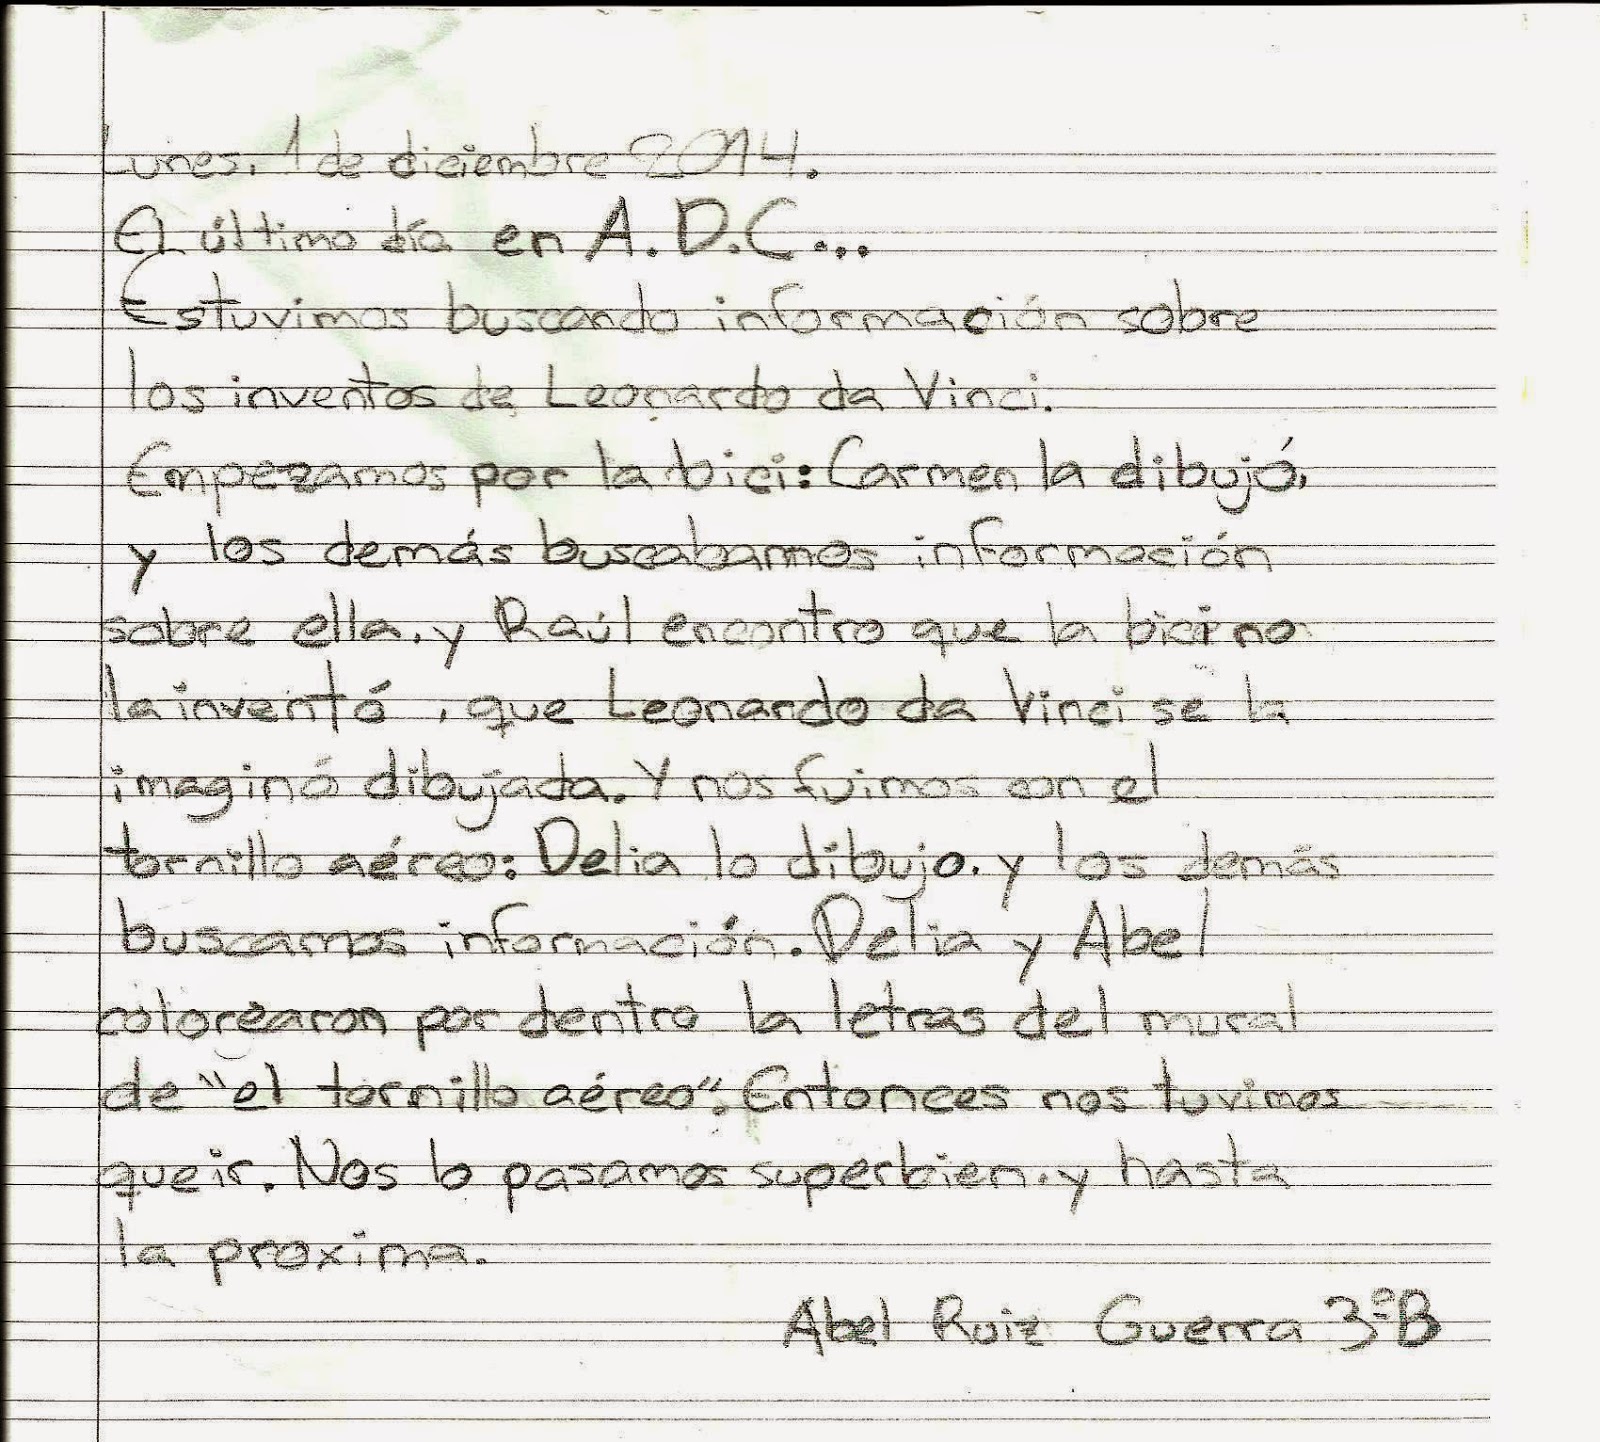 Lunes, 1 de diciembre 2014.
El último día en A.D.C...
Estuvimos buscando información sobre
los inventos de Leonardo da Vinci.
Empezamos por la bici: Carmen la dibujó,
y los demás buscabamos información
sobre ella, y Raúl encontro que la bici no
la inventó, que Leonardo da Vinci se la
imaginó dibujada. Y nos fuimos con el
tornillo aéreo: Delia lo dibujo. y los demás
buscamos información. Delia y Abel
colorearon por dentro la letras del mural
de "el tornillo aéreo". Entonces nos tuvimos
que ir. Nos lo pasamos superbien. y hasta
la proxima.
Abel Ruiz Guerra 3ºB